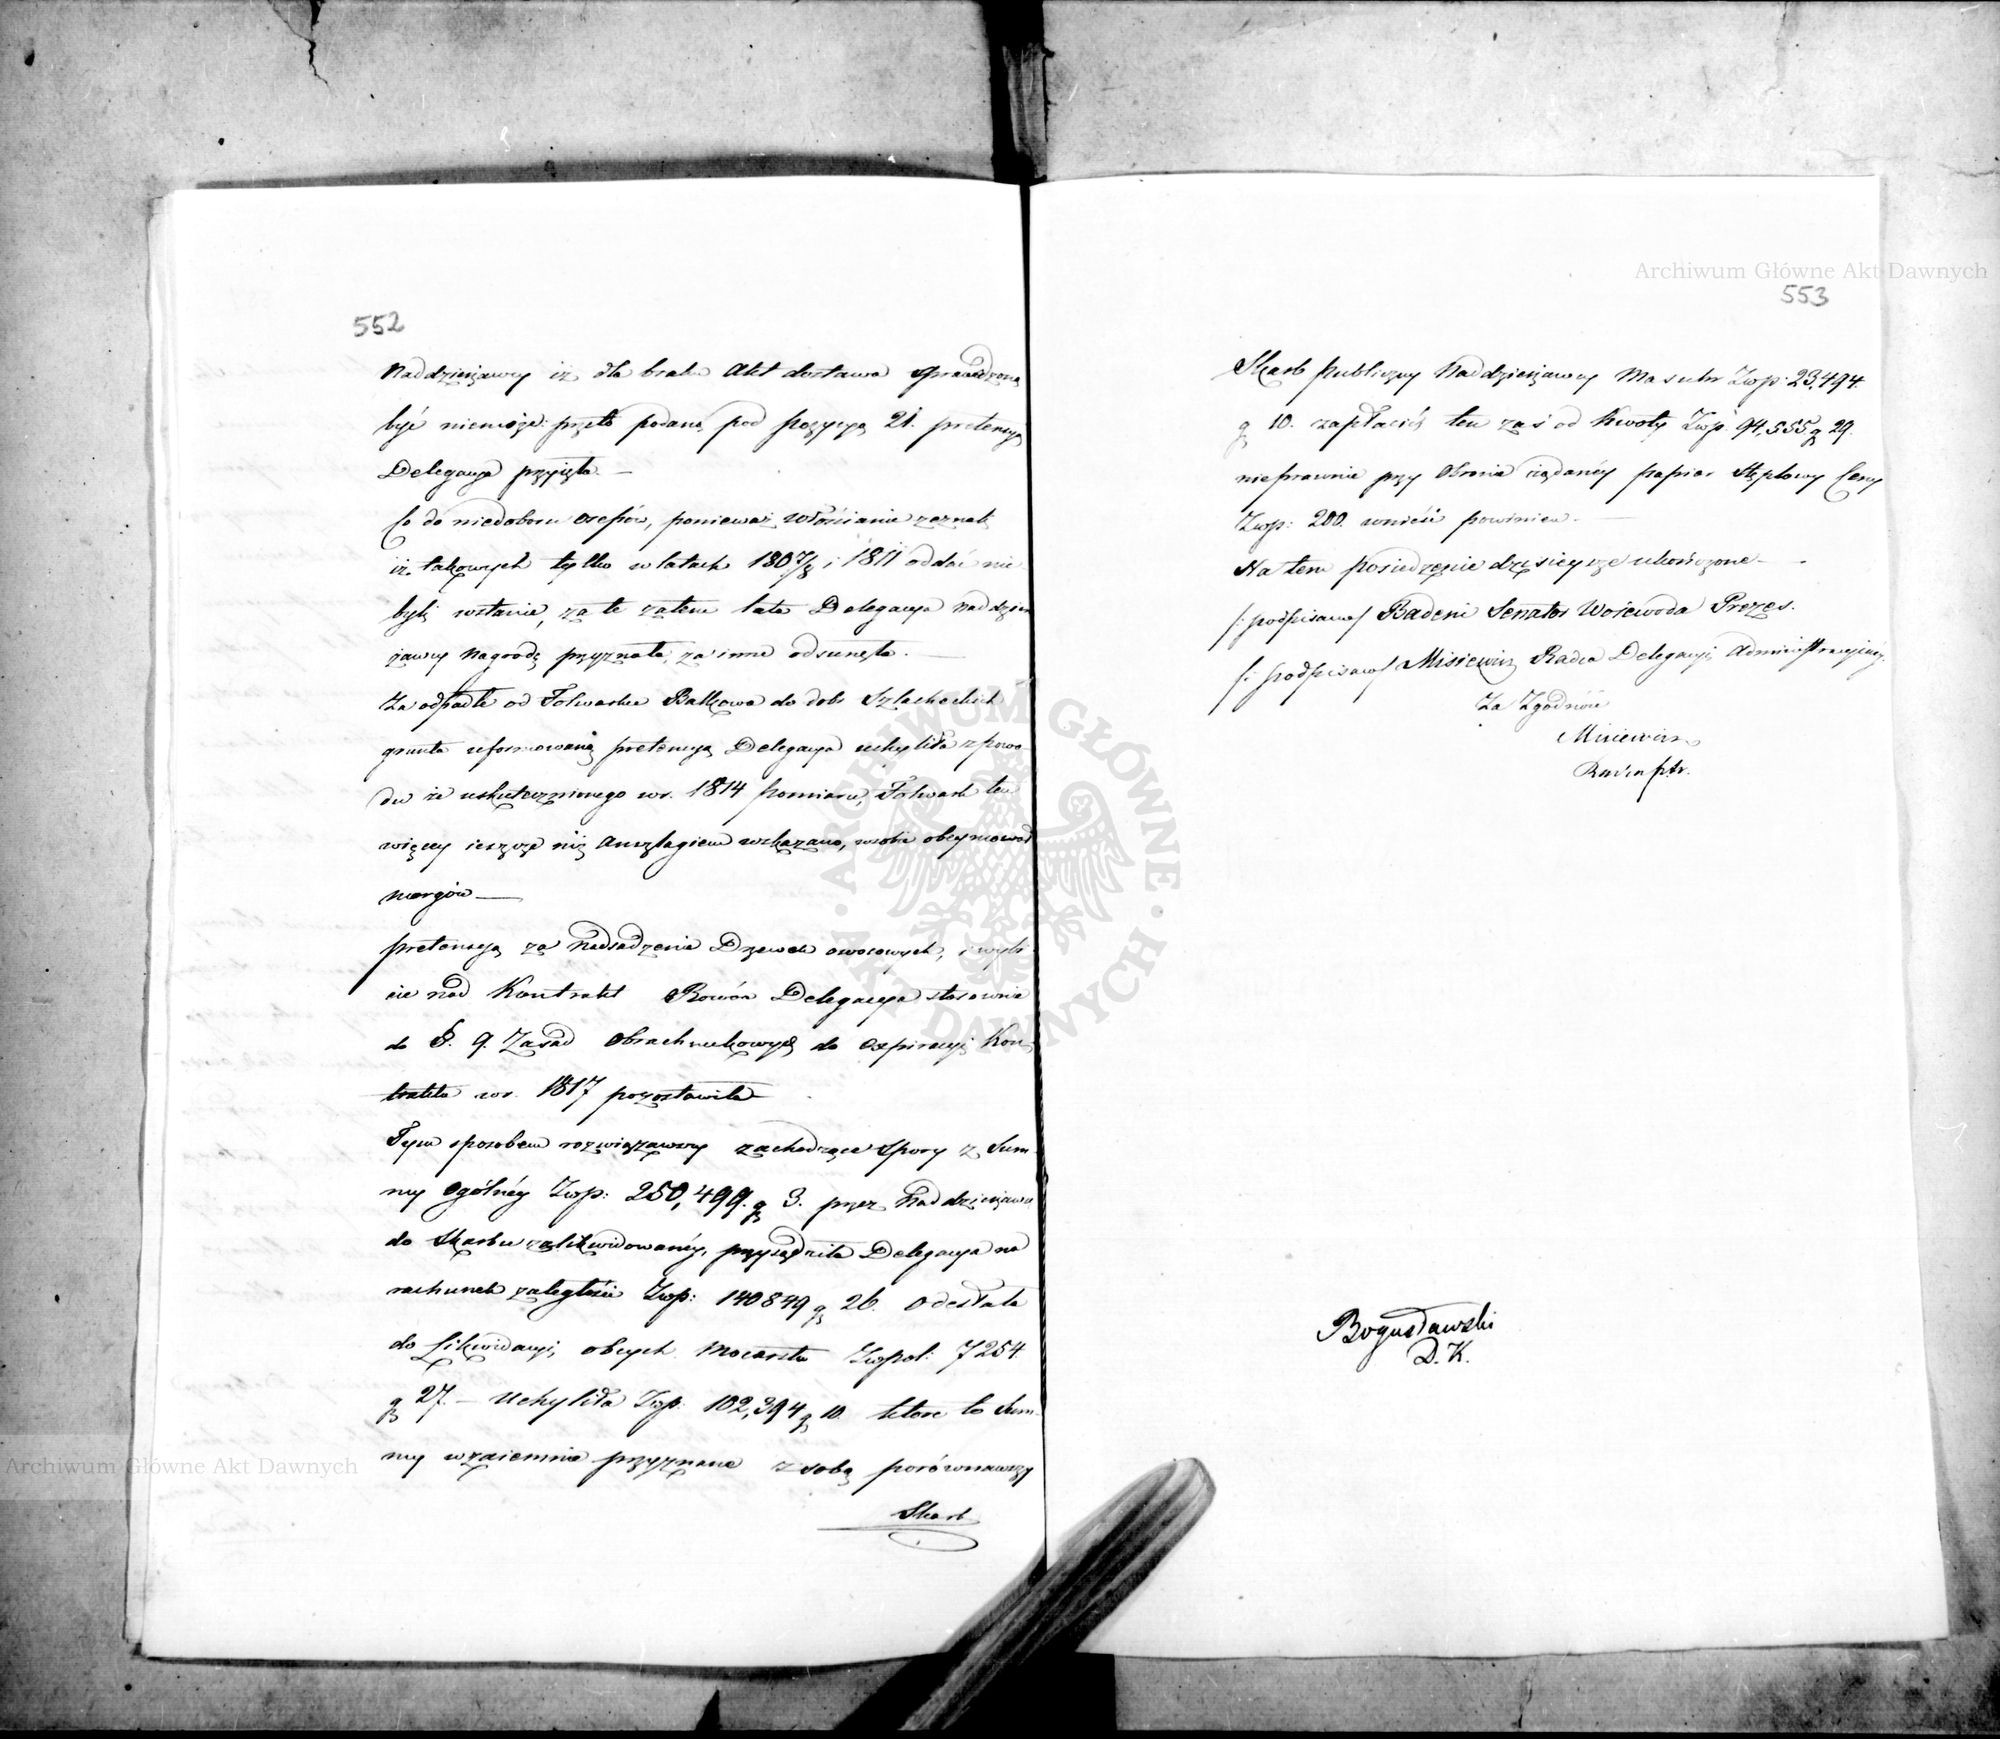 552
Naddzierżawcy iż dla braku Akt dostawa sprawdzoną
być niemoże: przeto podaną pod pozycyą 21. pretensyą
Delegacya przyięła. —
Co do niedoboru osepów, ponieważ włościanie zeznali
iż takowych tylko w latach 1807/8 i 1811 oddać nie
byli wstanie, za te zatem lata Delegacya naddzier
żawcy nagrodę przyznała, za inne odsunęła. —
Za odpadłe od Folwarku Balkowa do dobr Szlacheckich
grunta uformowaną pretensyą Delegacya uchyliła z powo-
du że uskutecznionego w r. 1814 pomiaru, Folwark ten
więcey ieszcze niż Anszlagiem wskazano, w sobie obeymował
morgów —
pretensyą za Nadsadzenie Drzewek owocowych, i wybi-
cie nad Kontrakt Rowów Delegacya stosownie
do §. 9. Zasad Obrachunkowych do expiracyi Kon-
traktu w r. 1817 pozostawiła —
Tym sposobem rozwiązawszy zachodzące Spory z Sum-
my ogólney Złp: 250,499. g 3. przez Naddzierżawcę
do Skarbu zalikwidowanéy, przysądziła Delegacya na
rachunek zaległości Złp: 140849 g 26. odesłała
do Likwidacyi obcych Mocarstw Złpol: 7254.
g 27. — Uchyliła Złp. 102,394 g 10. które to Sum-
my wzaiemnie przyznane z sobą porównawszy
Skarb
Archiwum Główne Akt Dawnych
553
Skarb Publiczny Naddzierżawcy Ma sum Złp: 23,494.
g 10. zapłacić, ten zaś od Kwoty Złp. 94,555 g 29.
nieprawnie przy Obronie żądanéy papier Stęplowy Ceny
Złp: 200. wnieść powinien. —
Na tem posiedzenie dzisieysze ukończone —
/: podpisano/ Badeni Senator Woiewoda Prezes.
/: podpisano/ Misiewicz Radca Delegacyi Administracyiney.
Za Zgodność
Misiewicz
Radca
Bogusławski
D. K.
Archiwum Główne Akt Dawnych
ARCHIWUM GŁÓWNE · AKT DAWNYCH ·